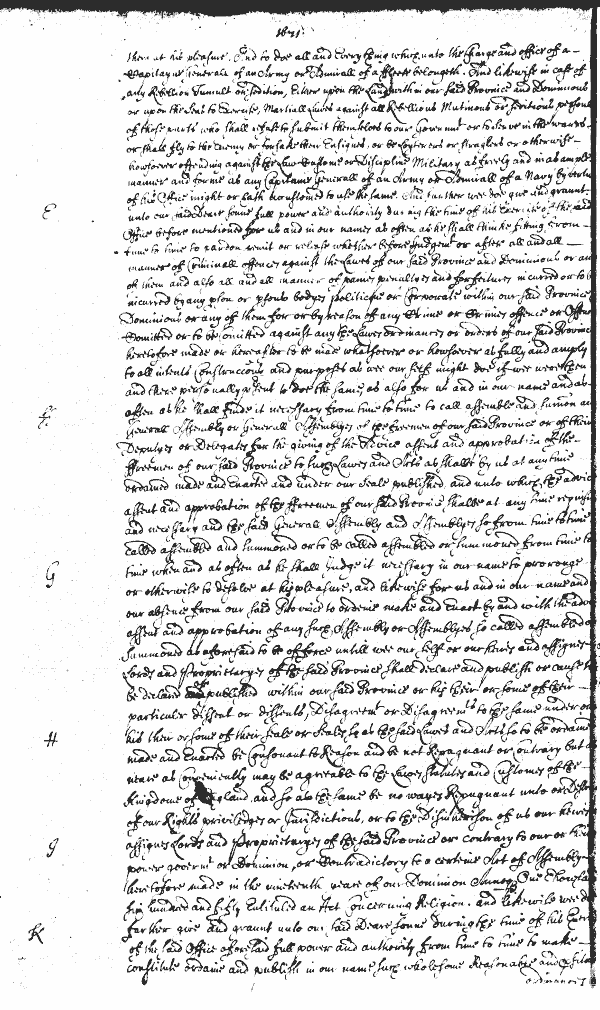 1671.
them at his pleasure. And to doe all and Every thing which unto the Charge and office of a
Capitayne Generall of an Army or Admirall of a ffleete belongeth. And likewise in case of
any Rebellion Tumult or Sedition, Either upon the Land within our said Province and Dominions
or upon the Seas to Exercise, Martiall Lawes against all Rebellious Mutinous or Seditious persons
of those parts who shall refuse to submitt themselves to our Governmt or to serve in the warrs
or shall fly to the Enemy or forsake their Ensignes, or be Loyterers or straglers or otherwise
howsoever offending against the Law Custome or Discipline Military as freely and in as ample
manner and forme as any Capitaine Generall of an Army or Admirall of a Navy by vertue
of his Office might or hath accustomed to use the same. And further wee doe give and graunt
E
unto our said Deare Sonne full power and authority during the time of his Exercise of the said
Office before mentioned for us and in our names as often as he shall thinke fitting from
time to time to pardon remitt or release whether before Judgemt or after all and all
manner of Criminall offences against the Lawes of our said Province and Dominions or any
of them and also all and all manner of paines penaltyes and forfeitures incurred or to be
incurred by any pson or psons bodyes politique or Corporate within our said Province
Dominions or any of them for or by reason of any Crime or Crimes offence or Offences
Comitted or to be comitted against any the Lawes ordinances or orders of our said Province
heretofore made or hereafter to be made whatsoever or howsoever as fully and amply
to all intents Construccions and purposes as wee our selfe might doe if wee were then
and there personally psent to doe the same, as also for us and in our name and as
F.
often as he shall finde it necessary from time to time to call assemble and sumon an
Generall Assembly or Generall Assemblyes of the freemen of our said Province or of their
Deputyes or Delegates for the giving of the Advice assent and approbation of the
ffreemen of our said Province to such Lawes and Acts as shalbe by us at any time
ordained made and Enacted and under our seale published, and unto which the advice
assent and approbation of the ffreemen of our said Province shalbe at any time requisite
and necessary and the said Generall Assembly and Assemblyes so from time to time
called assembled and summoned or to be called assembled or summoned from time to
G
time when and as often as he shall judge it necessary in our name to prorouge
or otherwise to disolve at his pleasure, and likewise for us and in our name and
our absence from our said Province to ordeine make and Enact by and with the advice
assent and approbation of any such Assembly or Assemblyes so called assembled
summoned as aforesaid to be of force untill wee our selfe or our heires and assignes
Lords and Proprietaryes of the said Province shall declare and publish or cause to
be declared and published within our said Province or his their or some of their
particuler dissent or dissents, Disagreemt or Disagreemts to the same under our
H
his their or some of their Seale or Seales so as the said Lawes and Acts so to be ordained
made and Enacted be Consonant to Reason and be not Repugnant or contrary but as
neare as Conveniently may be agreable to the Lawes Statutes and Customes of the
Kingdome of England and so as the same be no wayes Repugnant unto or
of our Rights priviledges or Jurisdictions, or to the Disinherison of us our heires
J
assignes Lords and Proprietaryes of the said Province or contrary to our or their
power governmt or Dominion, or Contradictory to a certeine Act of Assembly
heretofore made in the nineteenth yeare of our Dominion Annoq One thousand
six hundred and fifty Entituled an Act Concerning Religion. and likewise wee doe
K
further give and graunt unto our said Deare Sonne during the time of his Exercise
of the said Office aforesaid full power and authority from time to time to make
constitute ordaine and publish in our name such wholesome Reasonable and
ordinances